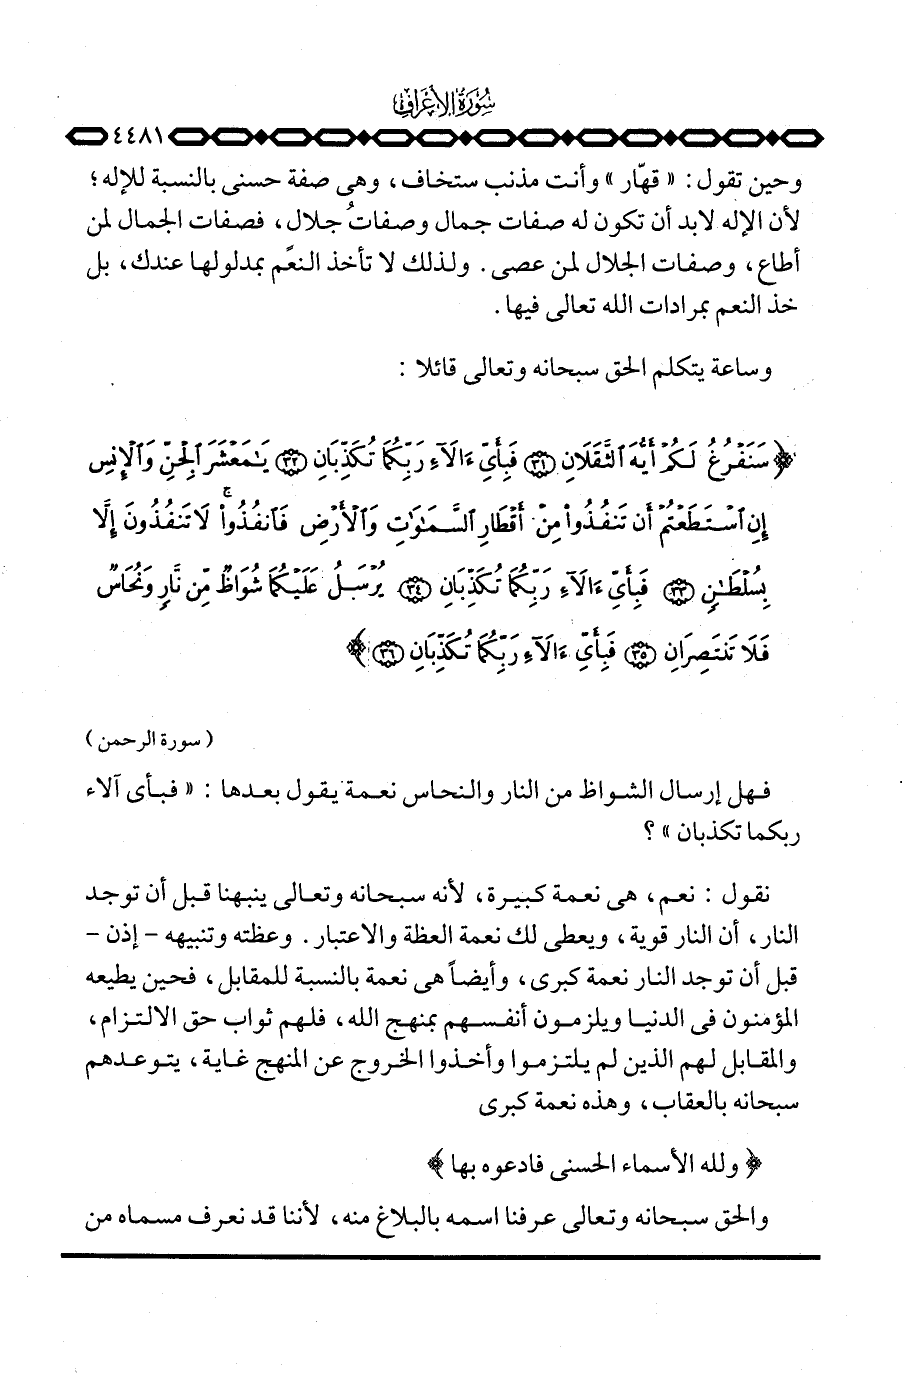 سُورَةُ الأَعْرَافِ
٤٤٨١
وحين تقول : « قهّار » وأنت مذنب ستخاف ، وهى صفة حسنى بالنسبة للإله ؛
لأن الإله لابد أن تكون له صفات جمال وصفاتُ جلال ، فصفات الجمال لمن
أطاع ، وصفات الجلال لمن عصى . ولذلك لا تأخذ النعَم بمدلولها عندك ، بل
خذ النعم بمرادات الله تعالى فيها .
وساعة يتكلم الحق سبحانه وتعالى قائلا :
﴿ سَنَفْرُغُ لَكُمْ أَيُّهَ ٱلثَّقَلَانِ ﴿٣١﴾ فَبِأَيِّ ءَالَآءِ رَبِّكُمَا تُكَذِّبَانِ ﴿٣٢﴾ يَٰمَعْشَرَ ٱلْجِنِّ وَٱلْإِنسِ
إِنِ ٱسْتَطَعْتُمْ أَن تَنفُذُوا۟ مِنْ أَقْطَارِ ٱلسَّمَٰوَٰتِ وَٱلْأَرْضِ فَٱنفُذُوا۟ ۚ لَا تَنفُذُونَ إِلَّا
بِسُلْطَٰنٍ ﴿٣٣﴾ فَبِأَيِّ ءَالَآءِ رَبِّكُمَا تُكَذِّبَانِ ﴿٣٤﴾ يُرْسَلُ عَلَيْكُمَا شُوَاظٌ مِّن نَّارٍ وَنُحَاسٌ
فَلَا تَنتَصِرَانِ ﴿٣٥﴾ فَبِأَيِّ ءَالَآءِ رَبِّكُمَا تُكَذِّبَانِ ﴿٣٦﴾ ﴾
( سورة الرحمن )
فهل إرسال الشواظ من النار والنحاس نعمة يقول بعدها : « فبأى آلاء
ربكما تكذبان » ؟
نقول : نعم ، هى نعمة كبيرة ، لأنه سبحانه وتعالى ينبهنا قبل أن توجد
النار ، أن النار قوية ، ويعطى لك نعمة العظة والاعتبار . وعظته وتنبيهه - إذن -
قبل أن توجد النار نعمة كبرى ، وأيضاً هى نعمة بالنسبة للمقابل ، فحين يطيعه
المؤمنون فى الدنيا ويلزمون أنفسهم بمنهج الله ، فلهم ثواب حق الالتزام ،
والمقابل لهم الذين لم يلتزموا وأخذوا الخروج عن المنهج غاية ، يتوعدهم
سبحانه بالعقاب ، وهذه نعمة كبرى
﴿ ولله الأسماء الحسنى فادعوه بها ﴾
والحق سبحانه وتعالى عرفنا اسمه بالبلاغ منه ، لأننا قد نعرف مسماه من